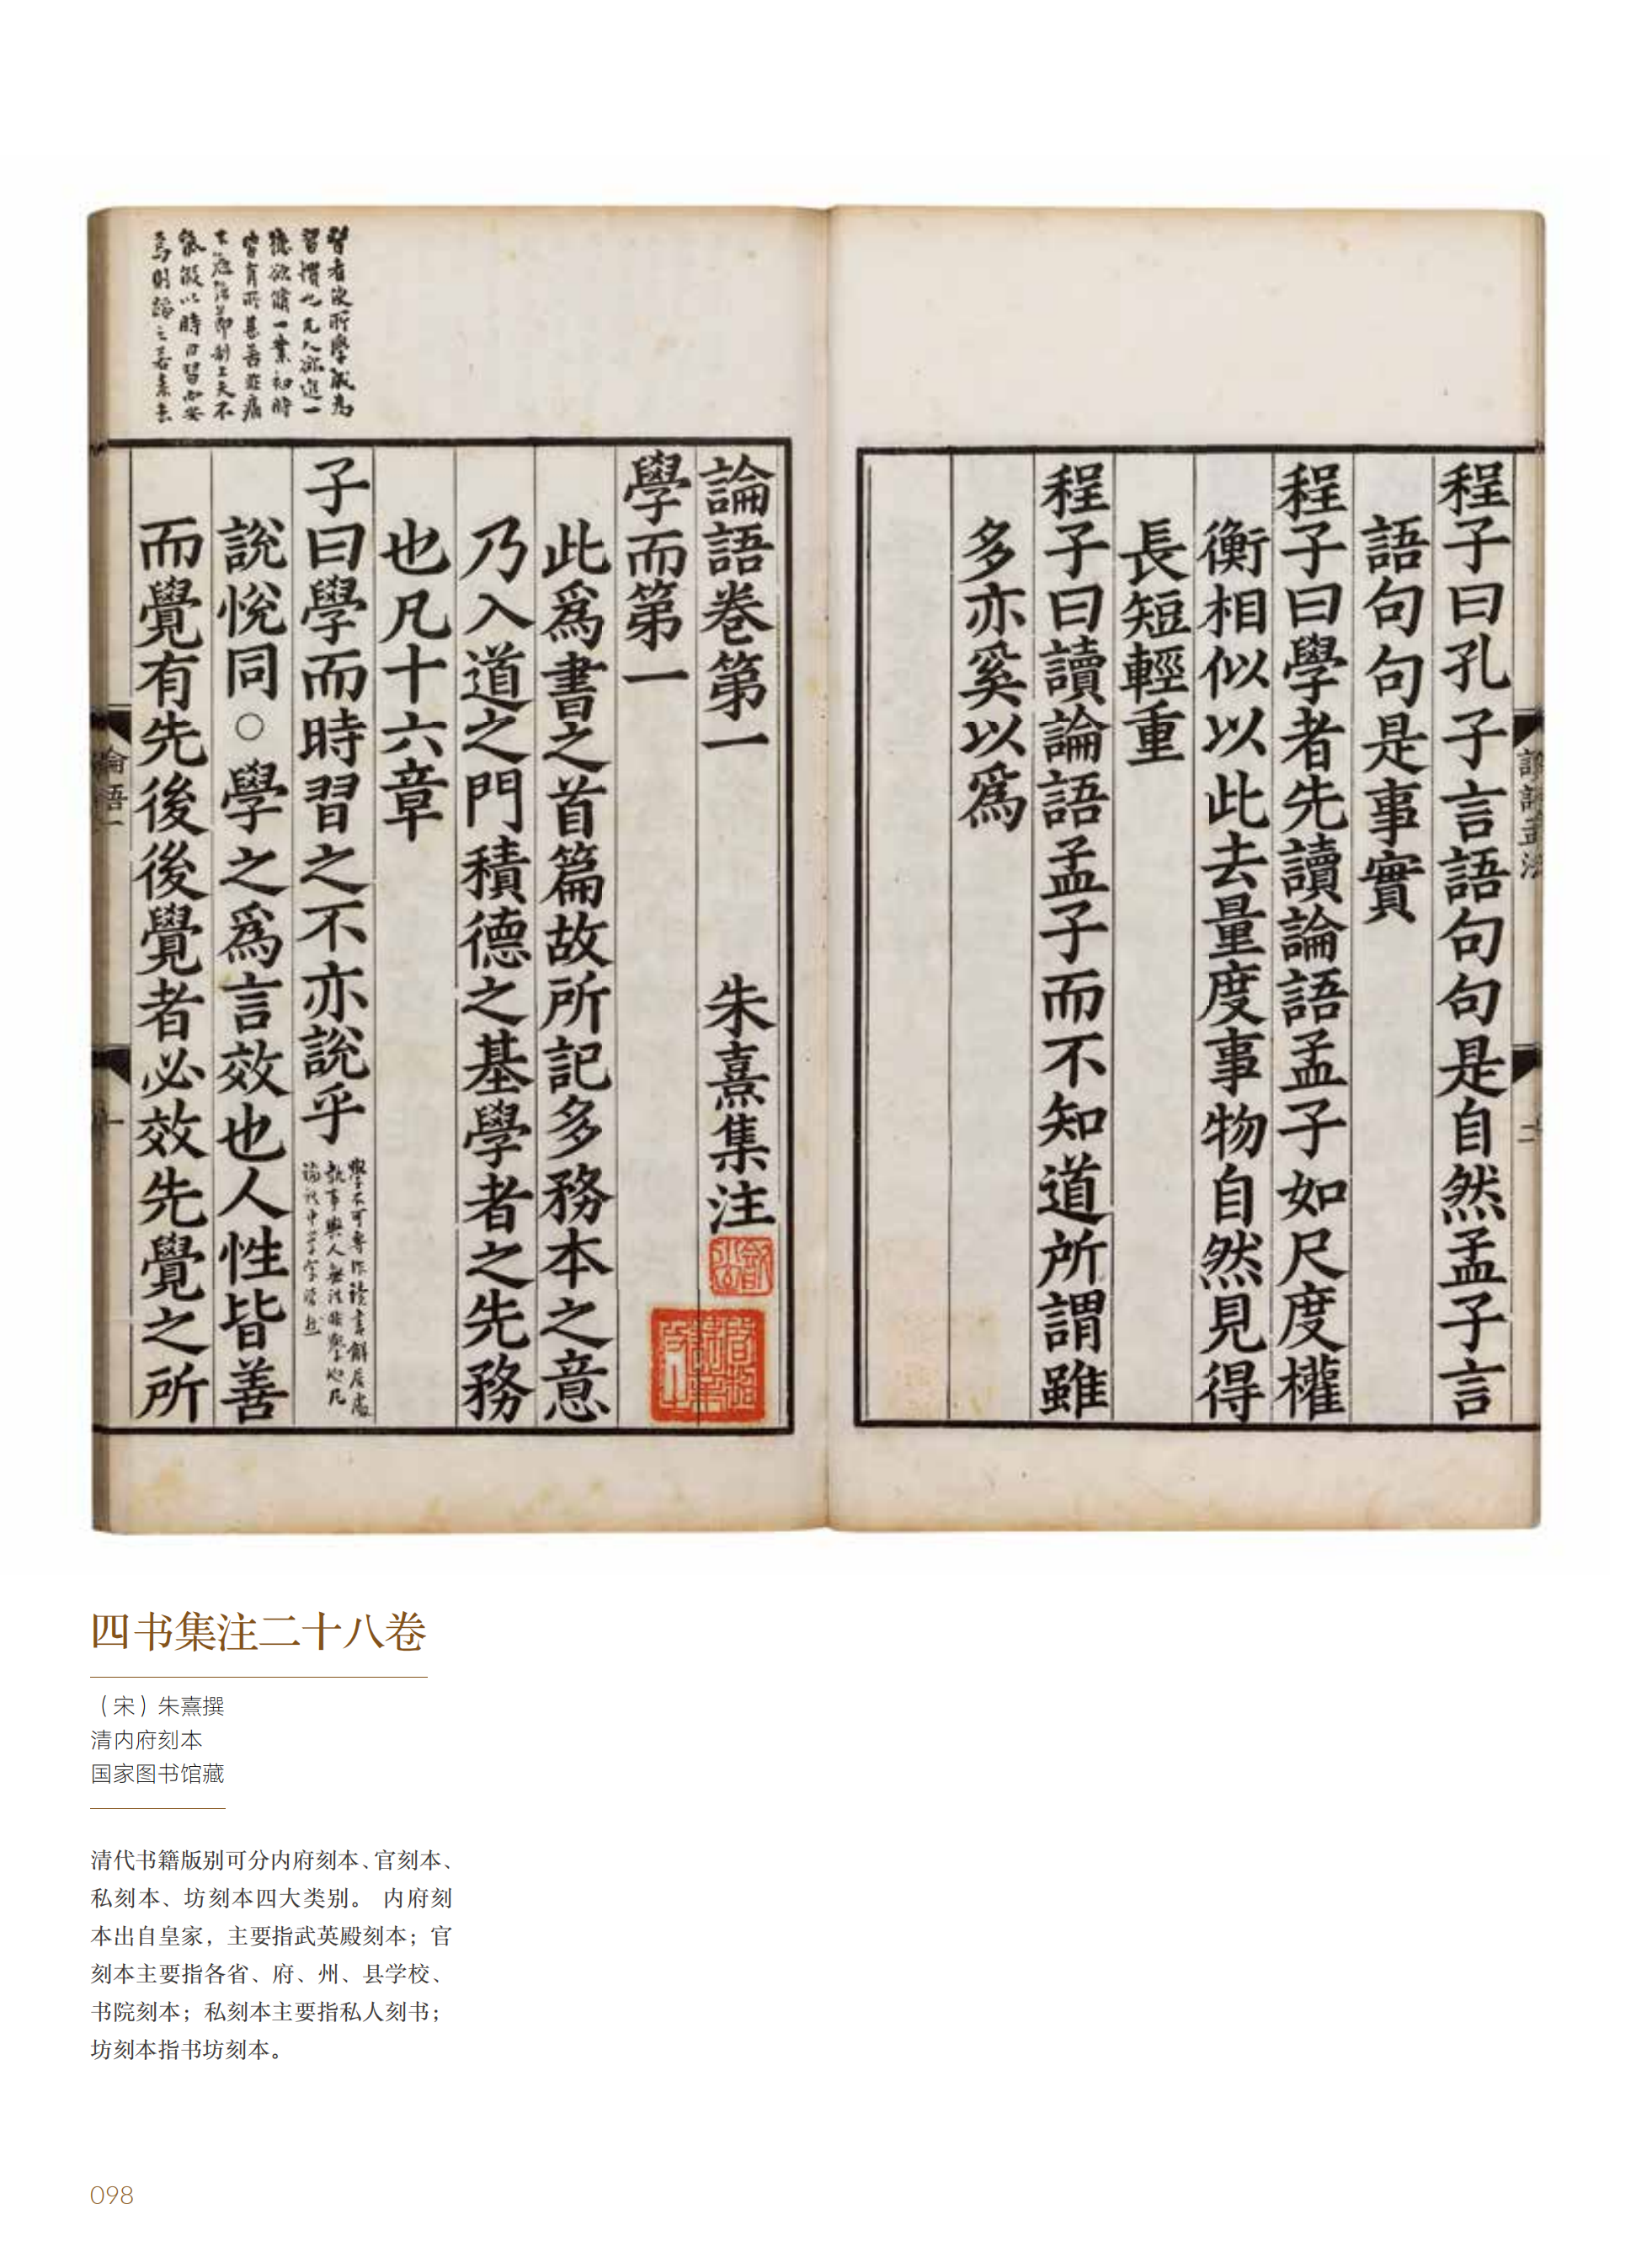 程子曰孔子言語句句是自然孟子言
語句句是事實
程子曰學者先讀論語孟子如尺度權
衡相似以此去量度事物自然見得
長短輕重
程子曰讀論語孟子而不知道所謂雖
多亦奚以爲
論語卷第一 朱熹集注
學而第一
此爲書之首篇故所記多務本之意
乃入道之門積德之基學者之先務
也凡十六章
子曰學而時習之不亦說乎
說悅同○學之爲言效也人性皆善
而覺有先後後覺者必效先覺之所
習者使所學成為
習慣也凡人欲進一
德欲備一業初時
四书集注二十八卷
（宋）朱熹撰
清内府刻本
国家图书馆藏
清代书籍版别可分内府刻本、官刻本、
私刻本、坊刻本四大类别。 内府刻
本出自皇家，主要指武英殿刻本；官
刻本主要指各省、府、州、县学校、
书院刻本；私刻本主要指私人刻书；
坊刻本指书坊刻本。
098